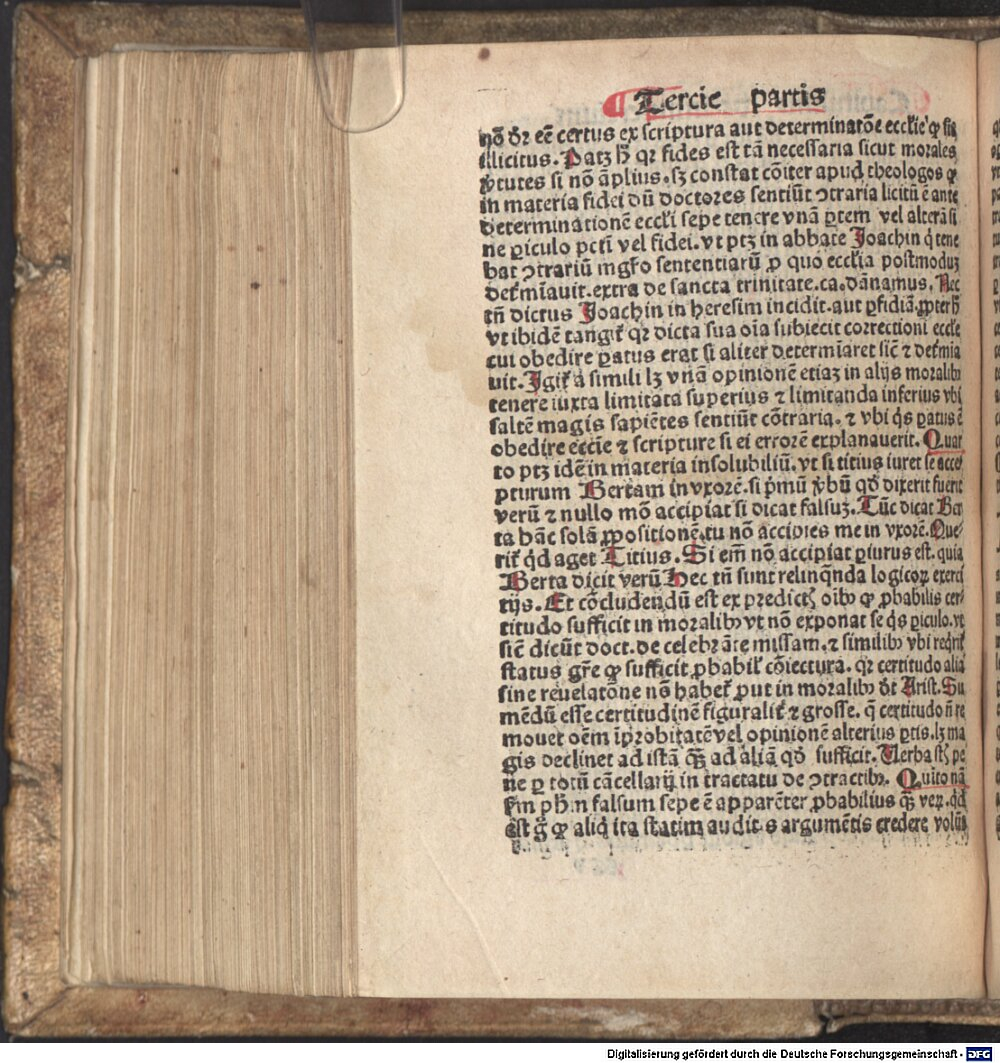 Tercie partis
nō dr̄ eē certus ex scriptura aut determinatōe eccl̄ie qꝫ sit
illicitus. Patꝫ h̄ qꝛ fides est tā necessaria sicut morales
ꝟtutes si nō āplius. sꝫ constat cōiter apud theologos ꝙ
in materia fidei dū doctores sentiūt ꝯtraria licitū ē ante
determinationē eccl̄i sepe tenere vnā ꝑtem vel alterā si
ne ꝑiculo pctī vel fidei. vt ptꝫ in abbate Joachin q̇ tene
bat ꝯtrariū mgr̄o sententiarū ꝓ quo eccl̄ia postmoduꝫ
det̄mīauit. extra de sancta trinitate. ca. dānamus. Nec
tn̄ dictus Joachin in heresim incidit. aut ꝑfidiā. ꝓpter h̄
vt ibidē tangit̄ qꝛ dicta sua oīa subiecit correctioni eccl̄e
cui obedire ꝑatus erat si aliter determīaret sic̄ ⁊ det̄mia
uit. Igit̄ a simili lꝫ vnā opinionē etiaꝫ in alijs moralibꝰ
tenere iuxta limitata superius ⁊ limitanda inferius vbi
saltē magis sapiētes sentiūt cōtraria. ⁊ vbi q̇s ꝑatus ē
obedire eccīe ⁊ scripture si ei errorē explanauerit. Quar
to ptꝫ idē in materia insolubiliū. vt si titius iuret se acce
pturum Bertam in vxorē. si p̄mū ꝟbū qd̄ dixerit fuerit
verū ⁊ nullo mō accipiat si dicat falsuꝫ. Tūc dicat Ber
ta hāc solā ꝓpositionē. tu nō accipies me in vxorē. Que
rit̄ q̇d aget Titius. Si em̄ nō accipiat ꝑiurus est. quia
Berta dicit verū Hec tn̄ sunt relinq̄nda logicoꝝ exerci
tijs. Et cōcludendū est ex predictꝭ oībꝰ ꝙ ꝓbabilis cer
titudo sufficit in moralibꝰ vt nō exponat se q̇s ꝑiculo. vt
sic̄ dicūt doct. de celebrāte missam. ⁊ similibꝰ vbi reqrit̄
status gr̄e ꝙ sufficit ꝓbabil̄ cōiectura. qꝛ certitudo alia
sine reuelatōne nō habet̄ ꝓut in moralibꝰ dt̄ Arist. Su
mēdū esse certitudinē figuralit̄ ⁊ grosse. q̄ certitudo n̄ re
mouet oēm īprobitatē vel opinionē alterius ꝑtis. lꝫ ma
gis declinet ad istā qꝫ̄ ad aliā qd̄ sufficit. Verba st̄ꝭ pe
ne ꝑ totū cācellarij in tractatu de ꝯtractibꝰ. Quīto nā
sm̄ ph̄m falsum sepe ē apparēter ꝓbabilius qꝫ̄ veꝝ. q̇d
est g̊ ꝙ aliq̇ ita statim auditis argumētis credere volūt